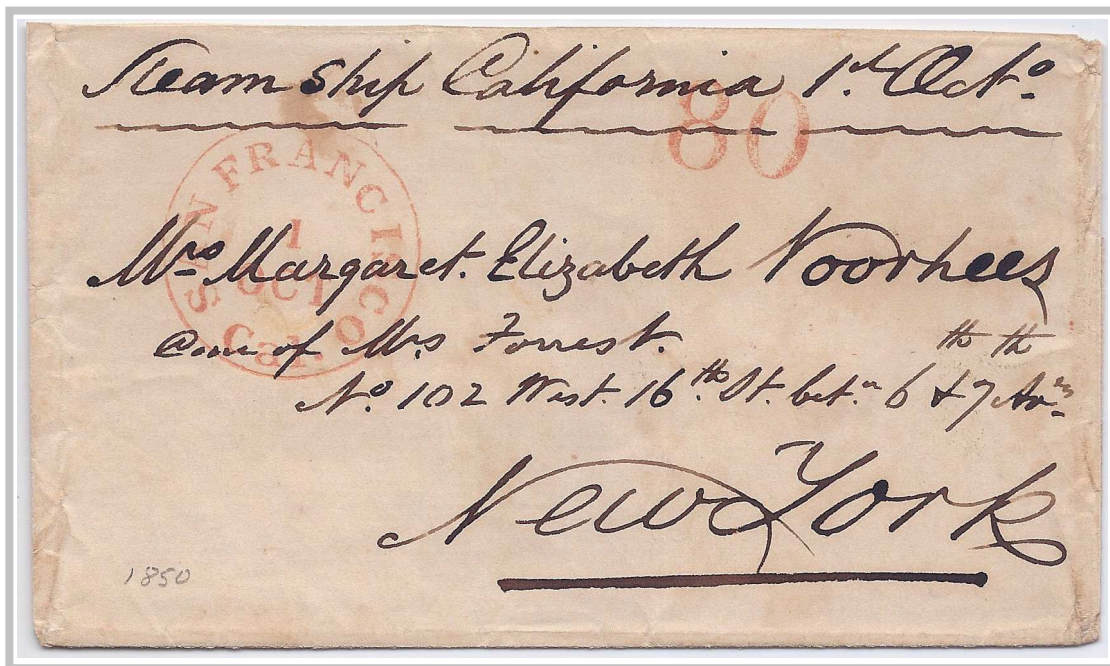 Steam Ship California 1st Octo.
80
SAN FRANCISCO
1
OCT
Cal.
Mrs Margaret. Elizabeth Voorhees
Care of Mrs Forrest.
No. 102 West. 16th St. betn 6th & 7th Avs
New York
1850